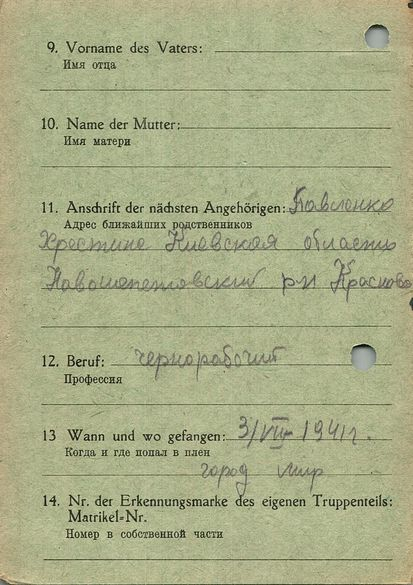 9. Vorname des Vaters:
Имя отца
10. Name der Mutter:
Имя матери
11. Anschrift der nächsten Angehörigen: Павленко
Адрес ближайших родственников
Хрестина Киевская области
ский р-н
12. Beruf: чернорабочий
Профессия
13 Wann und wo gefangen: 3/VII-1941г.
Когда и где попал в плен
город Мир
14. Nr. der Erkennungsmarke des eigenen Truppenteils:
Matrikel-Nr.
Номер в собственной части